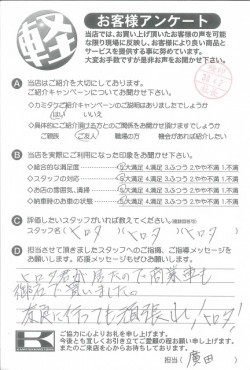 軽
お客様アンケート
当店では、お買い上げ頂いたお客様の声を可能
な限り現場に反映し、お客様により良い商品と
サービスを提供する事に努めています。
大変お手数ですが是非お声をお聞かせ下さい。
A 当店はご紹介を大切にしております。
ご紹介キャンペーンについてお聞かせ下さい。
・カミタウご紹介キャンペーンのご説明はありましたでしょうか
はい いいえ
・具体的にご紹介頂ける方とのご関係をお聞かせ頂けますでしょうか
ご親戚 ご友人 職場の方 機会があれば紹介したい
B 当店を実際にご利用になった印象をお聞かせ下さい。
・総合的な満足度 5大満足 4.満足 3.ふつう 2.やや不満 1.不満
・スタッフの対応 5大満足 4.満足 3.ふつう 2.やや不満 1.不満
・お店の雰囲気、清掃 5大満足 4.満足 3.ふつう 2.やや不満 1.不満
・納車時のお車の状態 5大満足 4.満足 3.ふつう 2.やや不満 1.不満
C 評価したいスタッフがいれば教えてください。(複数回答可)
スタッフ名( ヒロタ )( ヒロタ )( ヒロタ )
D 担当させて頂きましたスタッフへのご指摘、ご指導メッセージを
お願いします。ぜひ応援メッセージもお願いします。
ヒロタ君が居たので商業車も
買いました。
奈良に行っても頑張れ!ヒロタ!
K
ご協力に心よりお礼を申し上げます。
今後とも宜しくお引き立てご愛顧の程お願い申し上げます。
またのご来店を心からお待ちしております。
担当( 廣田 )